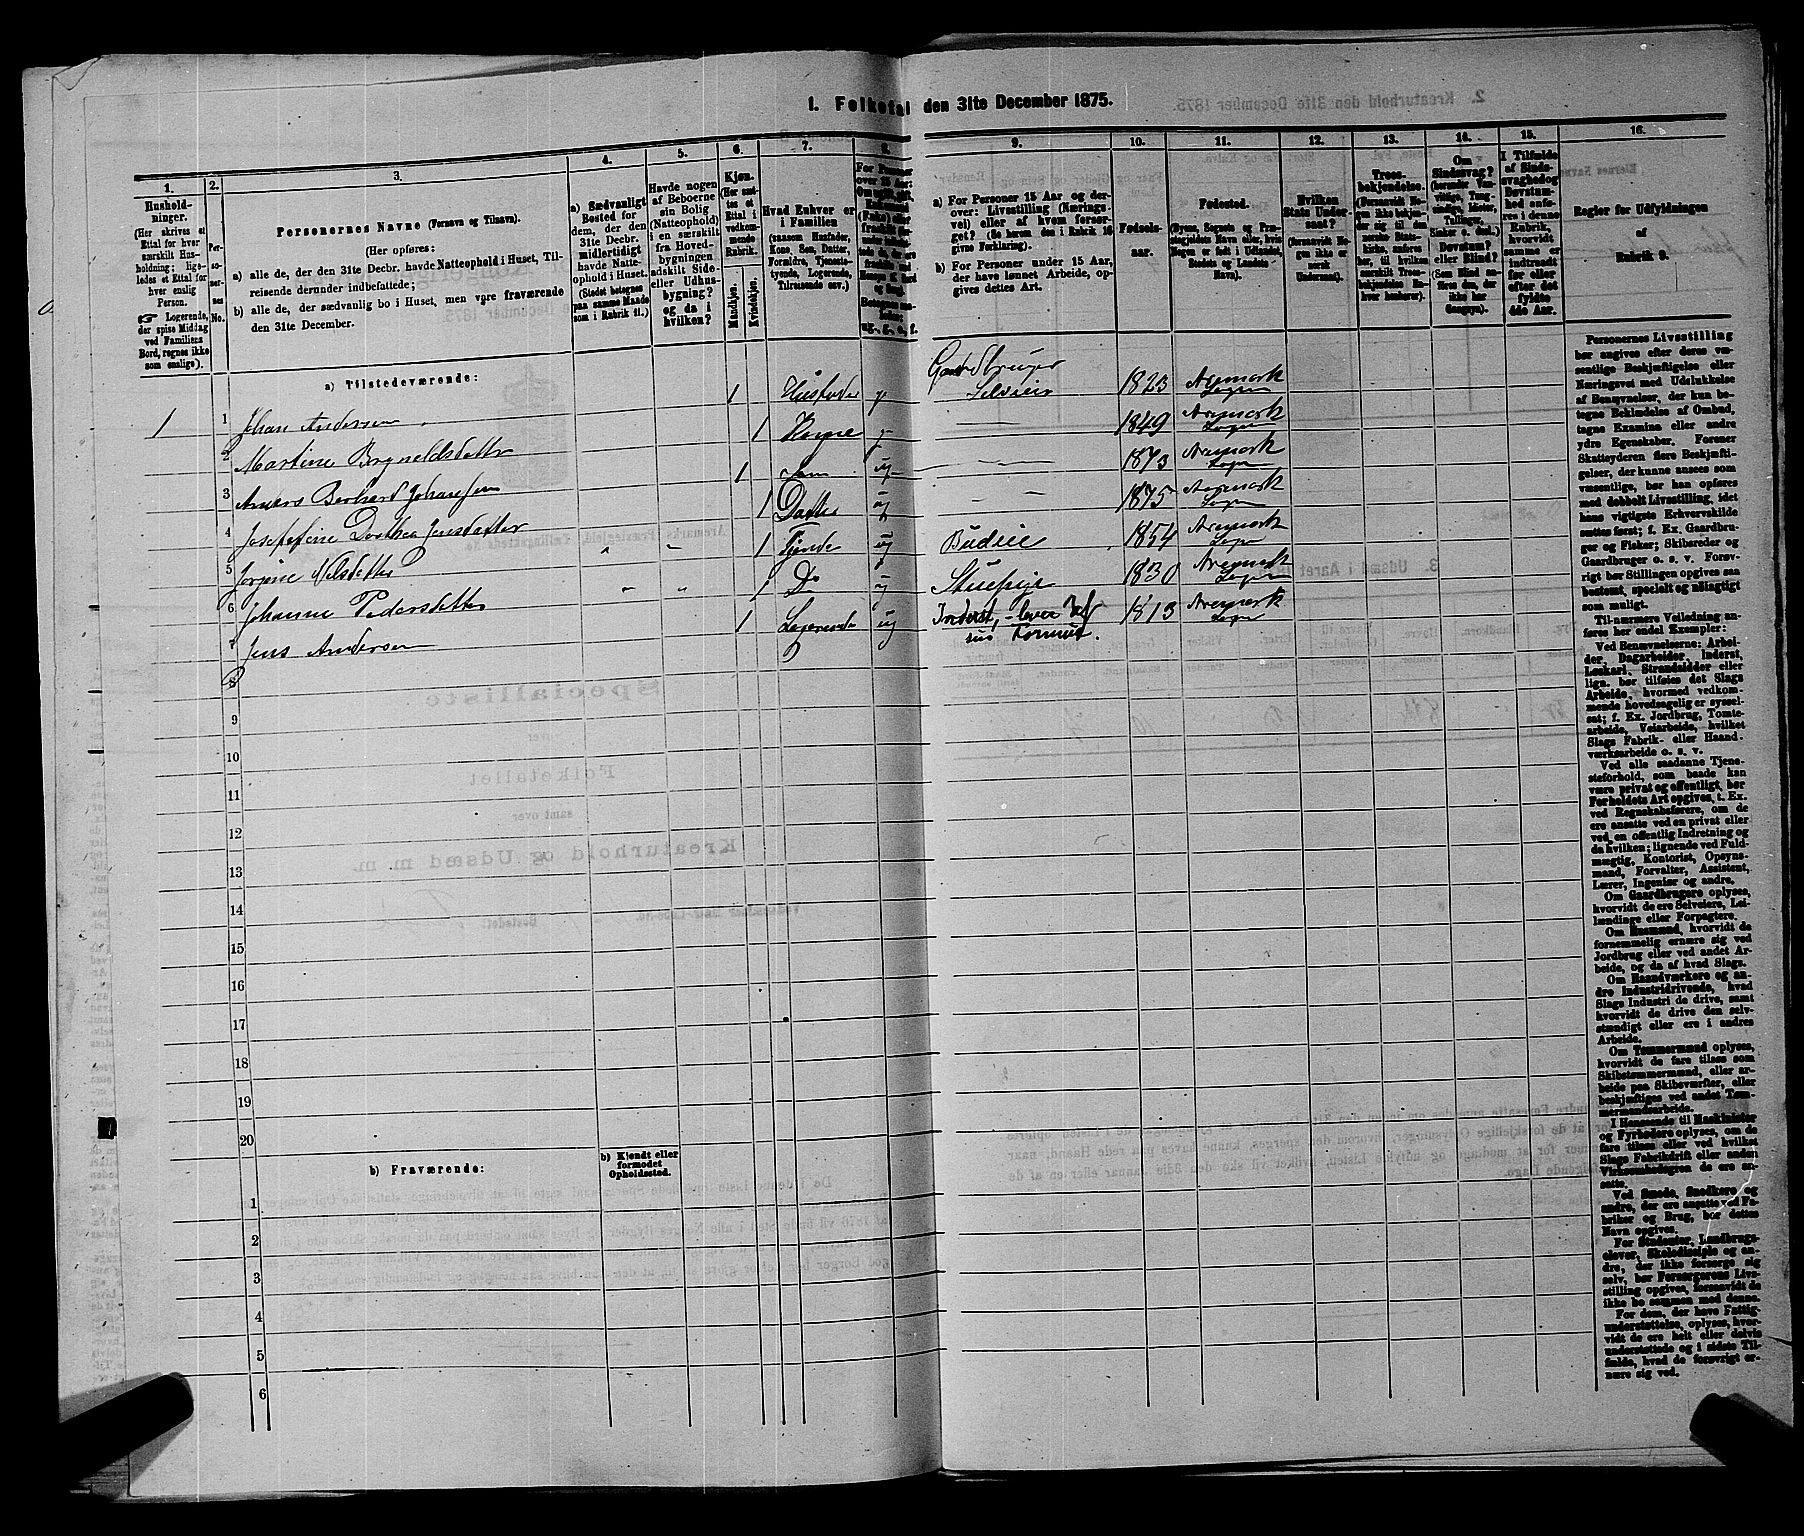 1. Folketal den 31te December 1875.
1.
Hushold-
ninger.
(Her skrives et
Ettal for hver
særskilt Hus-
holdning; lige-
ledes et Ettal for
hver enslig
Person.
☞ Logerende,
der spise Middag
ved Familiens
Bord, regnes ikke
som enslige).
2.
No.
3.
Personernes Navne (Fornavn og Tilnavn).
(Her opføres:
a) alle de, der den 31te Decbr. havde Natteophold i Huset, Til-
reisende derunder indbefattede;
b) alle de, der sædvanlig bo i Huset, men vare fraværende
den 31te December.
4.
a) Sædvanligt
Bosted for
dem, der den
31te Decbr.
midlertidigt
havde Natte-
ophold i Huset.
(Stedet betegnes
paa samme Maade
som i Rubrik 11.)
5.
Havde nogen
af Beboerne
sin Bolig
(Natteophold)
i en særskilt
fra Hoved-
bygningen
adskilt Side-
eller Udhus-
bygning?
og da i
hvilken?
6.
Kjøn.
(Her sæt-
tes et
Ettal i
vedkom-
mende
Rubrik.)
Mandkjøn.
Kvindekjøn.
7.
Hvad Enhver er
i Familien
(saasom Husfader,
Kone, Søn, Datter,
Forældre, Tjeneste-
tyende, Logerende,
Tilreisende osv.)
8.
9.
a) For Personer 15 Aar og der-
over: Livsstilling (Nærings-
vei) eller af hvem forsør-
get? (Se herom den i Rubrik 16
givne Forklaring).
b) For Personer under 15 Aar,
der have lønnet Arbeide, op-
gives dettes Art.
10.
Fødsels-
aar.
11.
Fødested.
(Byens, Sognets og Præ-
stegjeldets Navn eller, hvis
Nogen er født i Udlandet,
Stedets og Landets
Navn).
12.
Hvilken
Stats Under-
saat?
(Forsaavidt No-
gen ikke er
norsk
Undersaat).
13.
Troes-
bekjendelse.
14.
Om
Sindssvag?
Døvstum?
eller Blind?
15.
I Tilfælde
af Sinds-
svaghed og
Døvstum-
hed anfø-
res i denne
Rubrik,
hvorvidt
samme er
indtraadt
før eller
efter det
fyldte
4de Aar.
16.
Regler for Udfyldningen
af
Rubrik 9.
a) Tilstedeværende:
1 1 Johan Andersen 1 Husfader g Gardbruger Selveier 1823 Aremark Sogn
2 Martine Bryneldsdatter 1 Kone g 1849 Aremark Sogn
3 Anders Berhard Johansen 1 Søn ug 1873 Aremark Sogn
4 Josefine Dorthea Jensdatter 1 Datter ug 1875 Aremark Sogn
5 Jorgine Nilsdatter " " 1 Tjende ug Budeie 1854 Aremark Sogn
6 Johanne Pedersdatter " " 1 Do ug Stuepige 1830 Aremark Sogn
7 Jens Andersen 1 Logerende ug Inderst, lever af sin Formue. 1813 Aremark Sogn
8
9
10
11
12
13
14
15
16
17
18
19
20
b) Fraværende:
b) Kjendt eller
formodet
Opholdssted.
1
2
3
4
5
6
Personernes Livsstilling
bør angives efter deres væ-
sentlige Beskjæftigelse eller
Næringsvei med Udelukkelse
af Benævnelser, der kun be-
tegne Beklædelse af Ombud,
tagne Examina eller andre
ydre Egenskaber. Forener
Skatteyderen flere Beskjæfti-
gelser, der kunne ansees som
væsentlige, bør han opføres
med dobbelt Livsstilling, idet
hans vigtigste Erhvervskilde
sættes først; f. Ex. Gaardbru-
ger og Fisker; Skibsreder og
Gaardbruger o. s. v. Forøv-
rigt bør Stillingen opgives saa
bestemt, specielt og nøiagtigt
som muligt.
Til nærmere Veiledning an-
føres her endel Exempler:
Ved Benævnelserne: Arbei-
der, Dagarbeider, Inderst,
Løskarl, Strandsidder eller
lign. bør tilføies det Slags
Arbeide, hvormed vedkom-
mende hovedsagelig er syssel-
sat; f. Ex. Jordbrug, Tomte-
arbeide, Veiarbeide, hvilket
Slags Fabrik- eller Haand-
værksarbeide o. s. v.
Ved alle saadanne Tjene-
steforhold, som baade kan
være privat og offentligt, bør
Forholdets Art opgives, t. Ex.
ved Regnskabsførere, om de
ere ansatte ved en privat eller
ved en offentlig Indretning og
da hvilken; lignende ved Fuld-
mægtig, Kontorist, Opsyns-
mand, Forvalter, Assistent,
Lærer, Ingeniør og andre.
Om Gaardbrugere oplyses,
hvorvidt de ere Selveiere, Lei-
lændinge eller Forpagtere.
Om Husmænd, hvorvidt de
fornemmelig ernære sig ved
Jordbrug eller ved andet Ar-
beide, og da af hvad Slags.
Om Haandværkere og an-
dre Industridrivende, hvad
Slags Industri de drive, samt
hvorvidt de drive den selv-
stændigt eller ere i andres
Arbeide.
Om Tømmermænd oplyses,
hvorvidt de fare tilsøs som
Skibstømmermænd, eller ar-
beide paa Skibsværfter, eller
beskjæftiges ved andet Tøm-
mermandsarbeide.
I Henseende til Maskinister
og Fyrbødere oplyses, om de
fare tilsøs eller ved hvilket
Slags Fabrikdrift eller anden
Virksomhedsgren de ere an-
satte.
Ved Smede, Snedkere og
andre, der ere ansatte ved Fa-
briker og Brug, bør dettes
Navn opgives.
For Studenter, Landbrugs-
elever, Skoledisciple og an-
dre, der ikke forsørge sig
selv, bør Forsørgerens Livs-
stilling opgives, forsaavidt de
ikke bo sammen med denne.
For dem, der have Fattig-
understøttelse, oplyses, hvor-
vidt de ere helt eller delvis
understøttede og i sidste Til-
fælde, hvad de forøvrigt er-
nære sig ved.